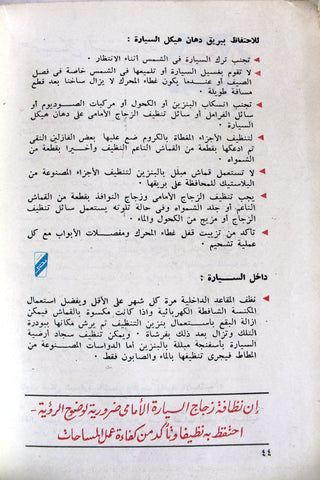 للاحتفاظ ببريق دهان هيكل السيارة :
تجنب ترك السيارة في الشمس أثناء الانتظار .
لا تقوم بغسيل السيارة أو تلميعها في الشمس خاصة في فصل
الصيف أو عندما يكون غطاء المحرك لا يزال ساخنا بعد قطع
مسافة طويلة .
تجنب انسكاب البنزين أو الكحول أو مركبات الصوديوم أو
سائل الفرامل أو سائل تنظيف الزجاج الأمامى على دهان هيكل
السيارة .
لتنظيف الأجزاء المغطاة بالكروم ضع عليها بعض الفازلين النقى
ثم ادعكها بقطعة من القماش الناعم النظيف وأخيرا بقطعة من
الشمواه .
لا تستعمل قماش مبلل بالبنزين لتنظيف الأجزاء المصنوعة من
البلاستيك للمحافظة على بريقها .
يجب تنظيف الزجاج الأمامى وزجاج النوافذ بقطعة من القماش
الناعم أو جلد الشمواه وفى حالة تلوثه يستعمل سائل تنظيف
الزجاج أو مزيج من الكحول والماء .
تأكد من تزييت قفل غطاء المحرك ومفصلات الأبواب مع كل
عملية تشحيم .
داخل السيارة :
نظف المقاعد الداخلية مرة كل شهر على الأقل ويفضل استعمال
المكنسة الشافطة الكهربائية واذا كانت مكسوة بالقماش فيمكن
ازالة البقع باستعمال بنزين التنظيف ثم يرش مكانها ببودرة
التلك وتزال بعد ذلك بفرشاة . ويمكن تنظيف سجاد أرضية
السيارة بأسفنجة مبللة بالبنزين أما الدواسات المصنوعة من
المطاط فيجرى تنظيفها بالماء والصابون فقط .
إن نظافة زجاج السيارة الأمامى ضرورية لوضوح الرؤية -
احتفظ به نظيفا وتأكد من كفاءة عمل المساحات
٤٤